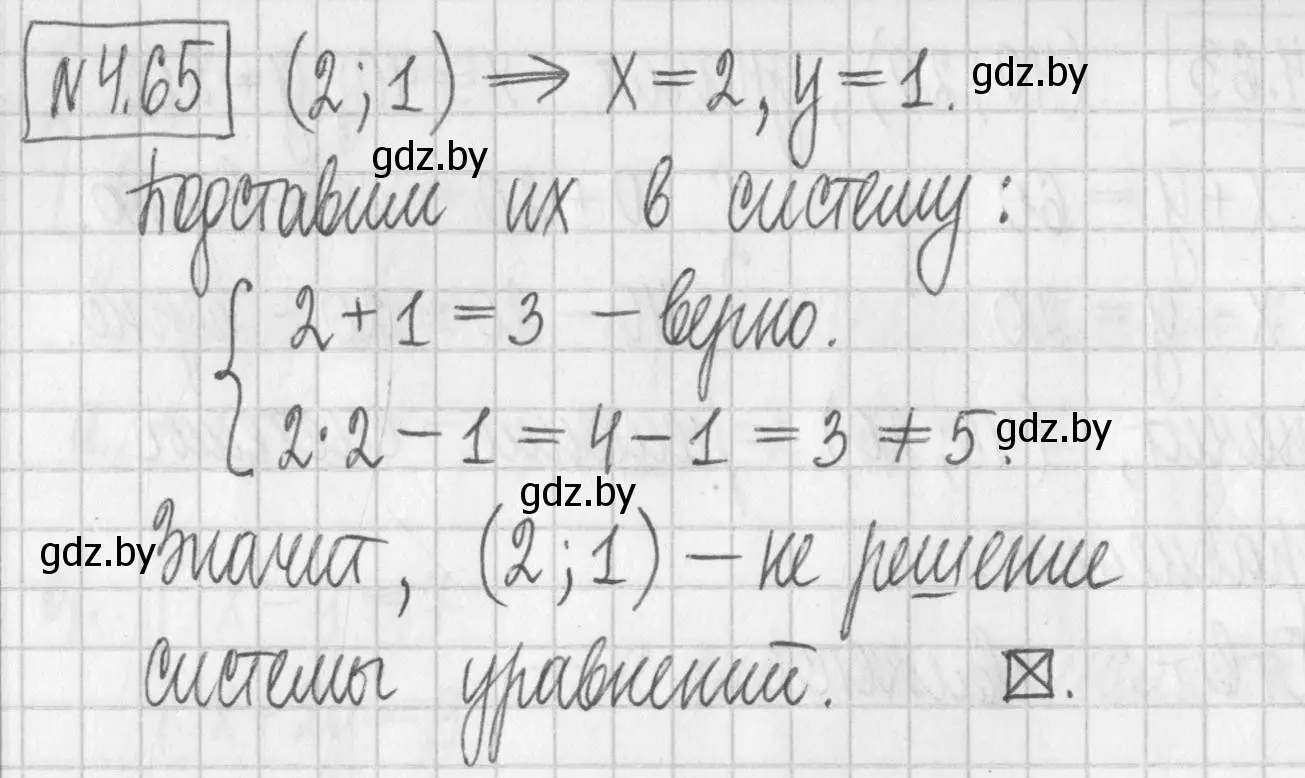 № 4.65 (2; 1) ⇒ x = 2, y = 1. gdz.by
gdz.by
Подставим их в систему:
2 + 1 = 3 – верно.
{
2·2 – 1 = 4 – 1 = 3 ≠ 5. gdz.by
gdz.by
gdz.by Значит, (2; 1) – не решение
системы уравнений. ☒.